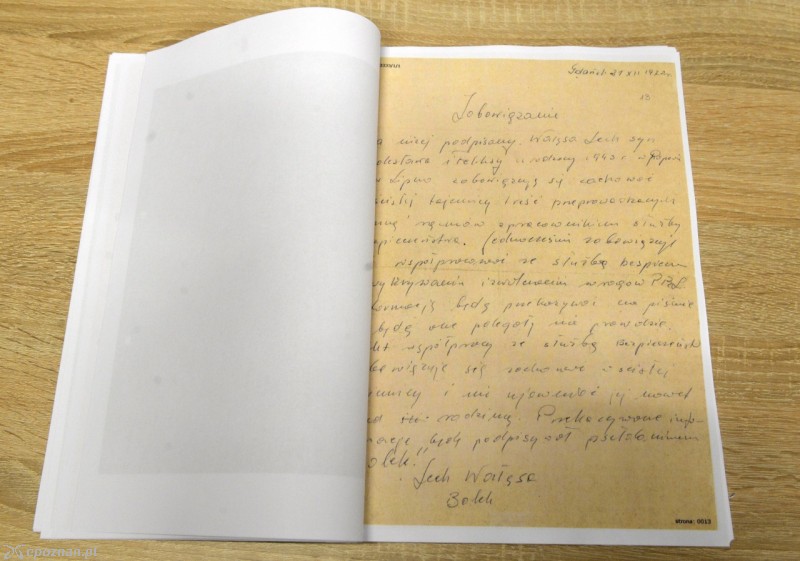 Gdańsk 21 XII 1970r.
13
Zobowiązanie
niżej podpisany Wałęsa Lech syn
olesława i Feliksy urodzony 1943 r w Popow
Lipno zobowiązuję się zachować
ścisłej tajemnicy treść przeprowadzonych
mną rozmów z pracownikiem służby
zpieczeństwa. Jednocześnie zobowiązuję
współpracować ze służbą bezpiecze
wykrywaniu i zwalczaniu wrogów PRL
formację będę przekazywać na piśmie
będą one polegały na prawdzie.
kt współpracy ze służbą Bezpieczeńst
bowiązuje się zachować w ścisłej
emnicy i nie ujawniać jej nawet
rodziną. Przekazywane info
macje będę podpisywał pseudonimem
olek".
Lech Wałęsa
Bolek
strona: 0013
epoznan.pl